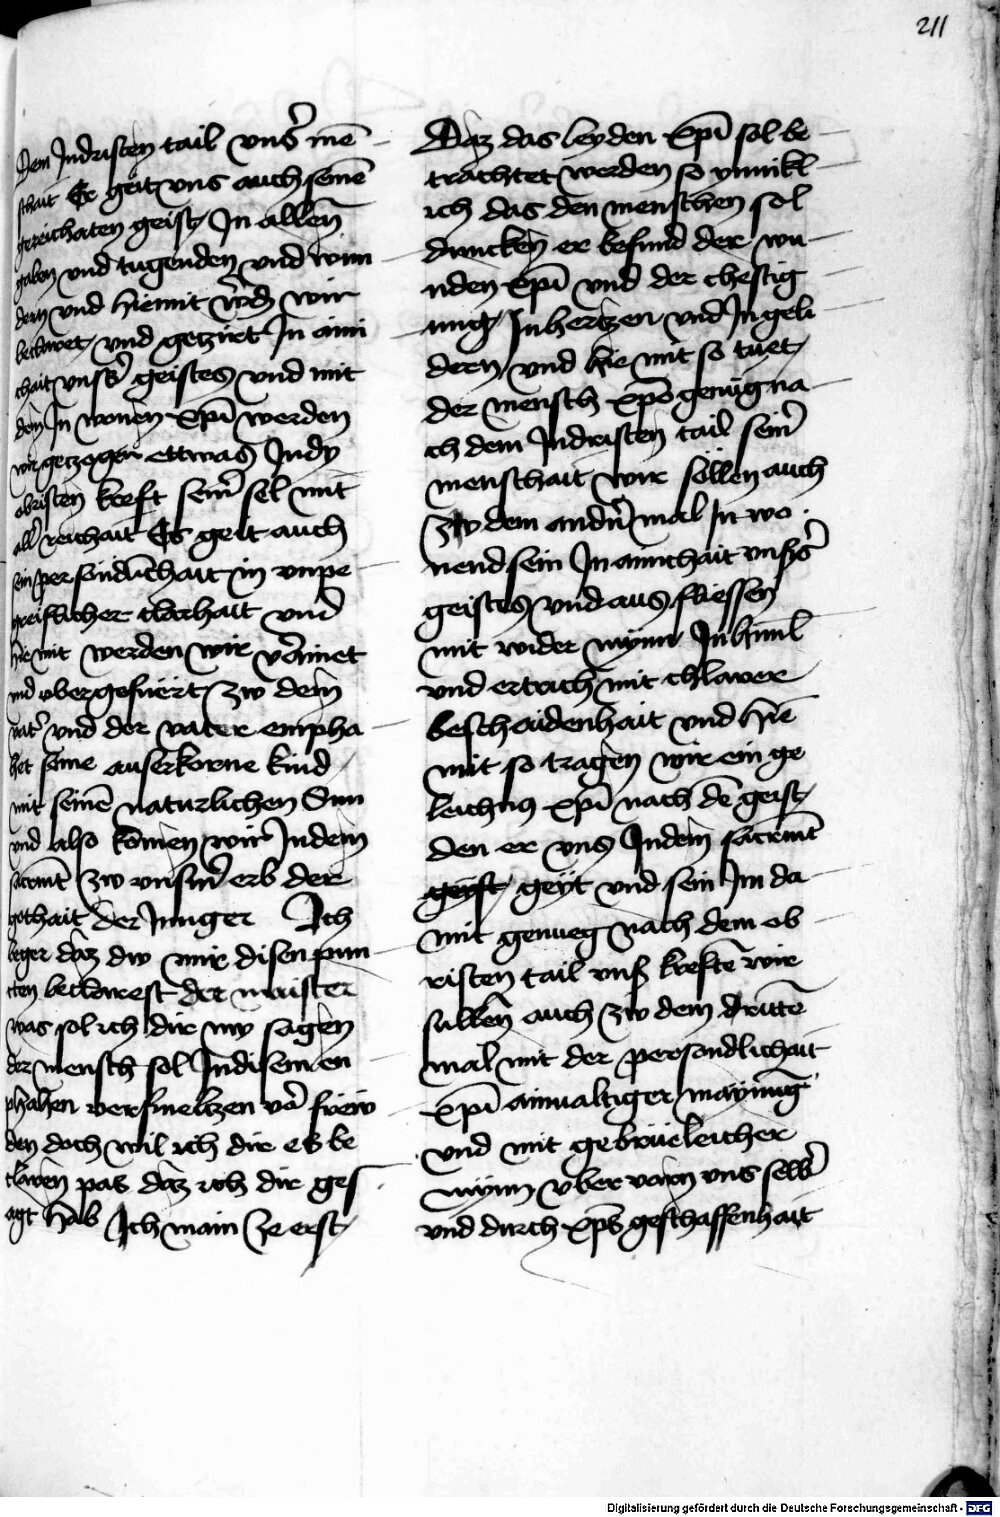 211
Dem Indristen tail vnsˀ mē
schait Er geit vns auch seinē
gereichaten geist In allen
gaben vnd tugenden vnd wun
dern vnd hiemit wˀd wir
beclaret vnd getzirt In aini
chait vnsˀ geistes vnd mit
dem In wonen xpī werden
wir getzogen ettwas Indy
obristen kreft seinˀ sel mit
allˀ reichait Es geit auch
sein persondlichait in vnpe
greiflicher clarhait vnd
hie mit werden wir vˀainet
vnd vbergefuert zw dem
vatˀ vnd der vater empha
het seine auserkorne kind
mit seinē naturlichen Sun
vnd also komen wir Indem
sacrmt zw vnsmˀ erb der
gothait Der Iunger Ich
beger daz dw mir disen pun
cten beclarest der maister
was sol ich dir nw sagen
der mensch sol Indisem en
phahen versmeltzen vōr frew
den doch wil ich dir es be
claren pas daz ich dir ges
agt hab Ich main ze erst
Daz das leyden xpī sol be
trachtet werden so ynnikl
ich das den menschen sol
duncken er befind der wu
nden xpī vnd der chestig
ung In hertzen vnd In geli
dern vnd hie mit so tuet
der mensch xpō genug na
ch dem Indristen tail seinˀ
menschait wir söllen auch
zw dem andˀn mal In wo
nend sein In ainichait vnsˀs
geistes vnd aus fliessen
mit wider mynn In himl
vnd ertrich mit chlarer
beschaidenhait vnd hie
mit so tragen wir ein ge
leichnus xpī nach dē geist
den er vns Indem sacrmt
geyst geyt vnd sein Im da
mit genueg nach dem ob
risten tail vnsˀ kreftē wir
sullen auch zw dem drittē
mal mit der persondlichait
xpī ainualtiger maynūg
vnd mit gebrueleicher
mynn vber varn vns selbˀ
vnd durch xps geschaffenhait
Digitalisierung gefördert durch die Deutsche Forschungsgemeinschaft - DFG